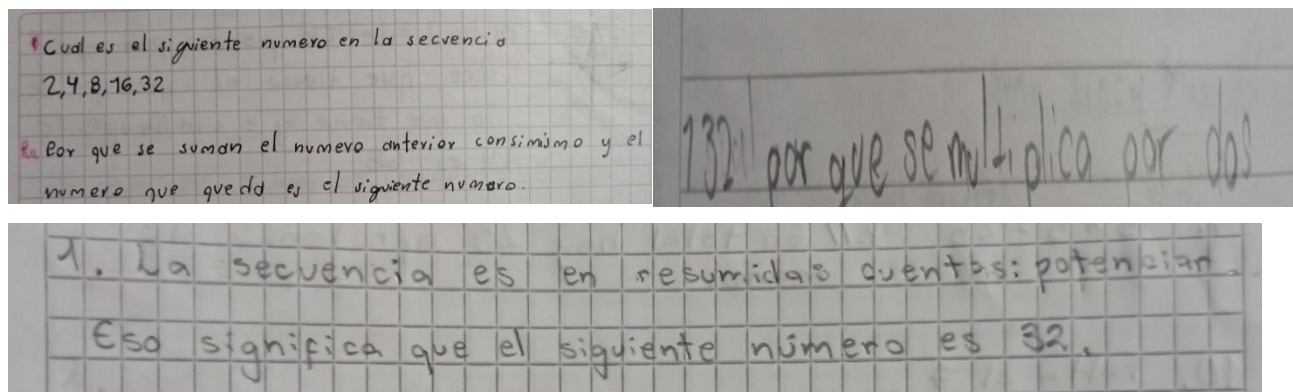 Cual es el siguiente numero en la secuencia
2,4,8,16,32
R. Por que se suman el numero anterior consimismo y el
numero que queda es el siguiente numero.
132 por que se multiplica por dos
1. La secuencia es en resumidas cuentas: potencian.
Eso significa que el siguiente número es 32.